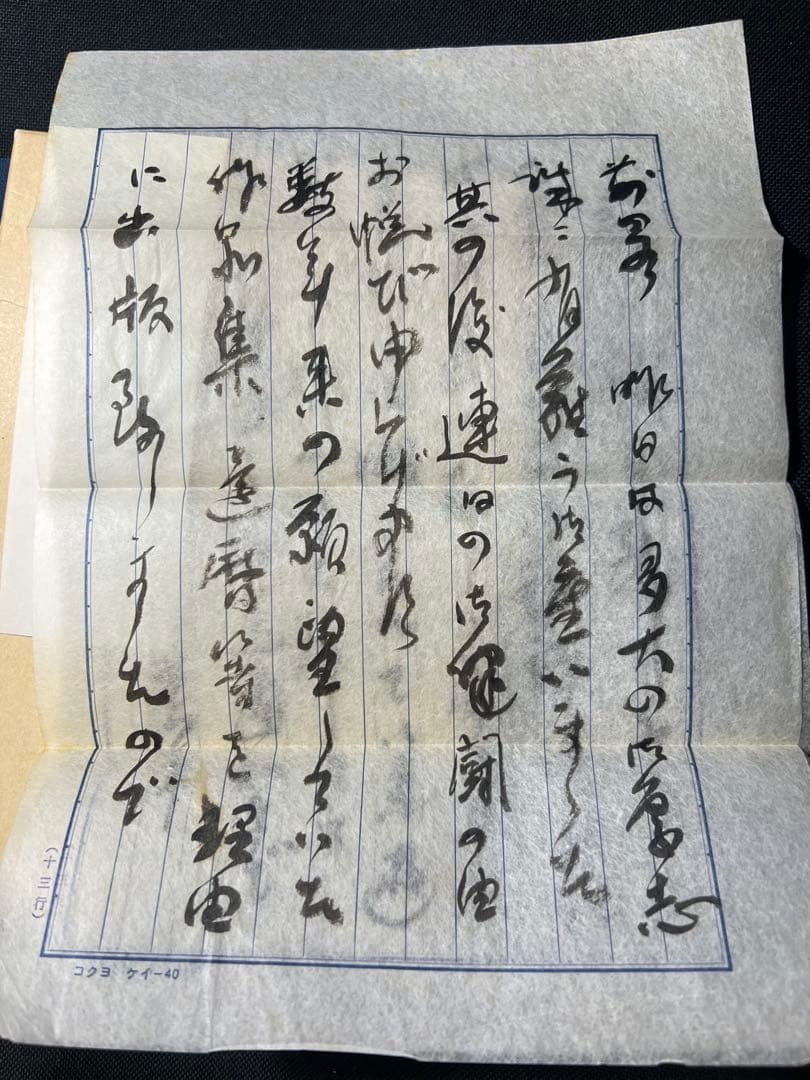 前略 昨日は多大の御厚志
誠に有難う御座いました
其の後連日の御健闘の由
お悦び申し上げます
数年来の願望していた
作品集 還暦等を理由
に出版致しましたので
(十三行)
コクヨ ケイ-40